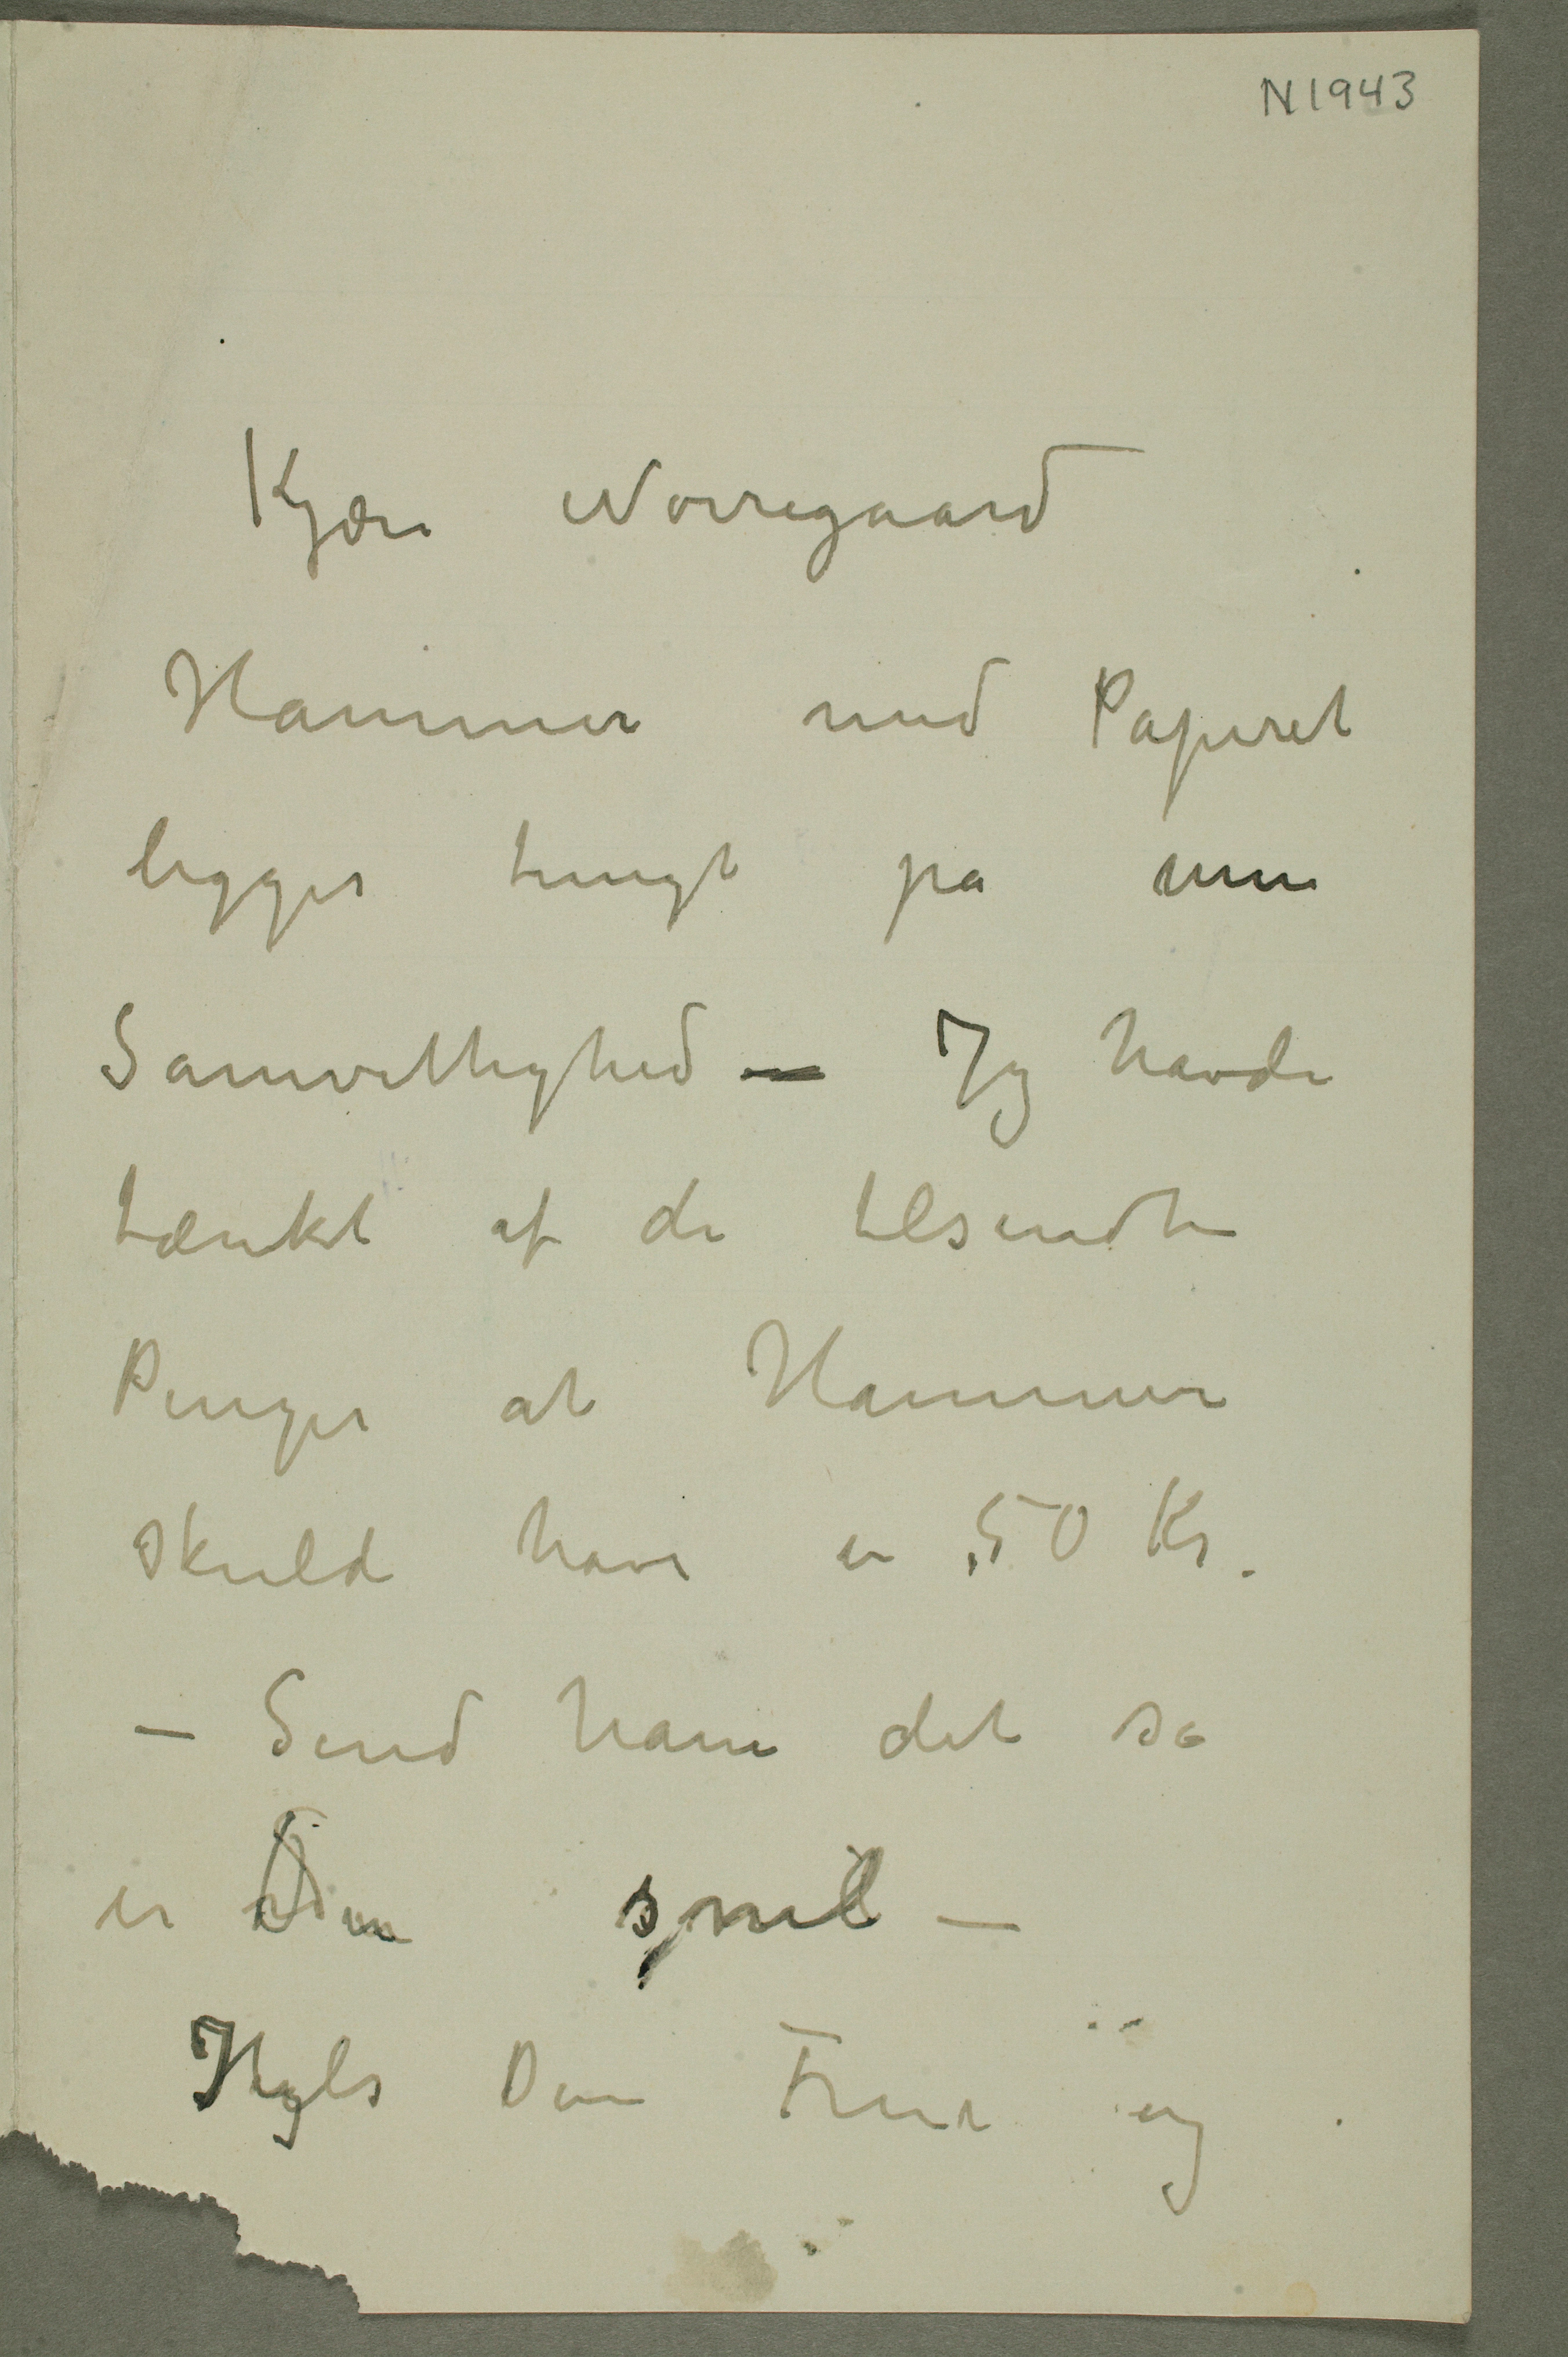 N 1943
Kjære Nørregaard
Hammer med Papiret
ligger tungt på min
Samvittighed – Jeg havde
tænkt af de tilsendte
Penger at Hammer
skulde have en 50 Kr.
– Send ham det så
er Du snil –
Hils Din Frue og